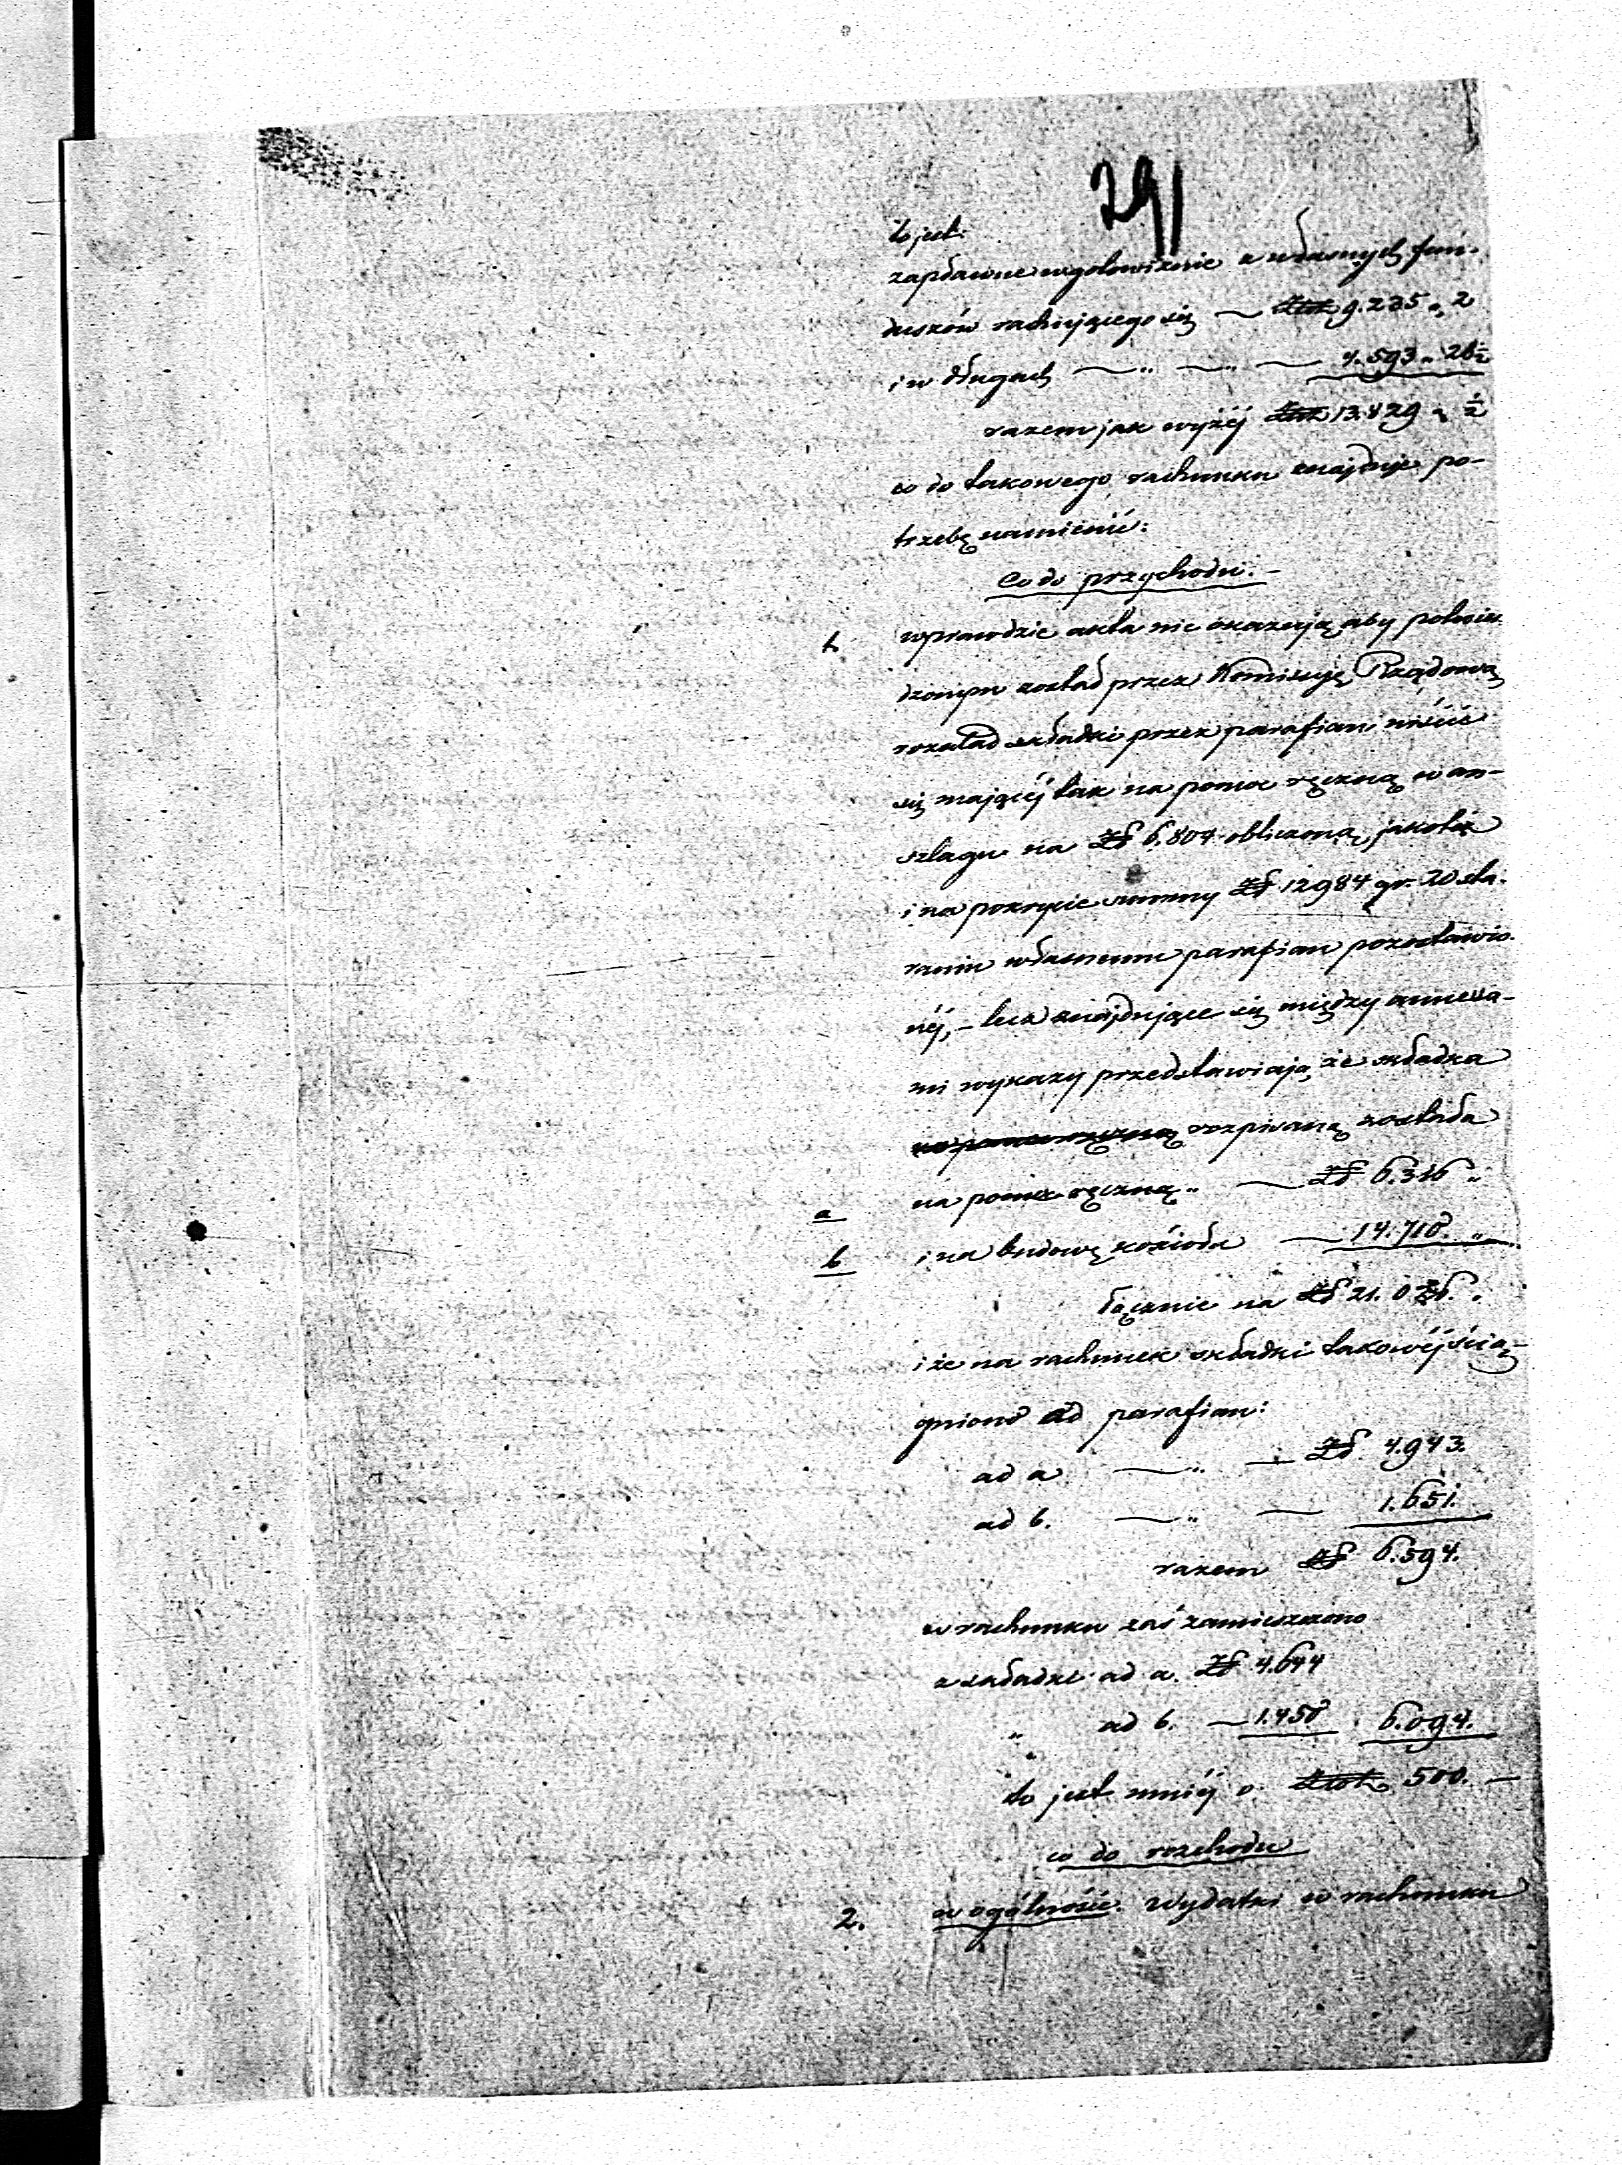 291
to jest:
zapłacone w gotowiznie z własnych fun-
duszów rachującego się — Złot 9.235 „ 2
i w długach — „ — „ — 4.593 „ 28½
razem jak wyżéj Złot 13.829 „ ½
co do takowego rachunku znajduje po-
trzebę namienić:
Co do przychodu. -
1. wprawdzie akta nie okazują aby potwier-
dzonym został przez Kommissyę Rządową
rozkład składki przez parafian uiścić
się mającéj tak na pomoc ręczną w an-
szlagu na Zł 6.804 obliczoną, jakoteż
i na pokrycie summy Zł 12984 gr. 20 sta-
raniu własnemu parafian pozostawio-
néj, - lecz znajdujące się między annexa-
mi wykazy przedstawiają, że składka
na pomoc ręczną rozpisaną została
a na pomoc ręczną „ — Zł 6.316 „
b i na budowę kościoła — 14.710. „
łącznie na Zł 21.026. „
i że na rachunek składki takowéj ścią-
gniono od parafian:
ad a — „ — Zł. 4.943.
ad b. — „ — 1.651.
razem Zł 6.594.
w rachunku zaś zamieszczono
z składki ad a. Zł 4.644
„ ad b. — 1.450 6.094.
to jest mniéj o Złot. 500. —
co do rozchodu
2. w ogólności. Wydatki w rachunku